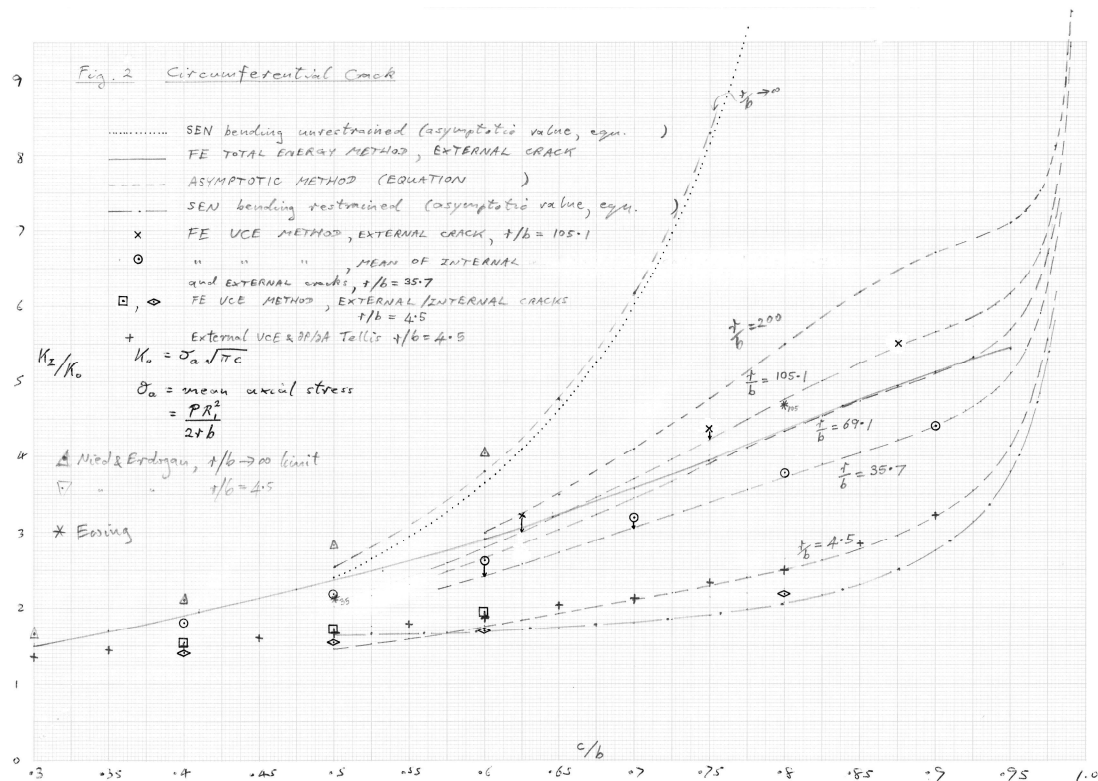 Fig. 2 Circumferential Crack
SEN bending unrestrained (asymptotic value, equn. )
FE TOTAL ENERGY METHOD, EXTERNAL CRACK
ASYMPTOTIC METHOD (EQUATION )
SEN bending restrained (asymptotic value, equn. )
× FE VCE METHOD, EXTERNAL CRACK, r/b = 105·1
⊙ " " " , MEAN OF INTERNAL
and EXTERNAL cracks, r/b = 35.7
⊡, FE VCE METHOD, EXTERNAL/INTERNAL CRACKS
r/b = 4·5
+ External VCE & ∂P/∂A Tellis r/b = 4·5
K_I/K_o
K_o = σ_a √πc
σ_a = mean axial stress
= PR_1²
2rb
Nied & Erdogan, r/b → ∞ limit
" " r/b = 4.5
* Easing
r/b → ∞
r/b = 200
r/b = 105·1
*105
r/b = 69·1
r/b = 35·7
r/b = 4·5
*35
9
8
7
6
5
4
3
2
1
0
c/b
·3 ·35 ·4 ·45 ·5 ·55 ·6 ·65 ·7 ·75 ·8 ·85 ·9 ·95 1.0